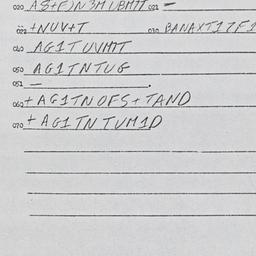 020 AS+F)N3MIUBMTT 021 —
022 +NUV+T 030 BANAXT17F1
040 AG1TUVMTT
050 AG1TNTUG
051 — .
060 +AG1TNOFS+TAND
070 +AG1TNTUM1D